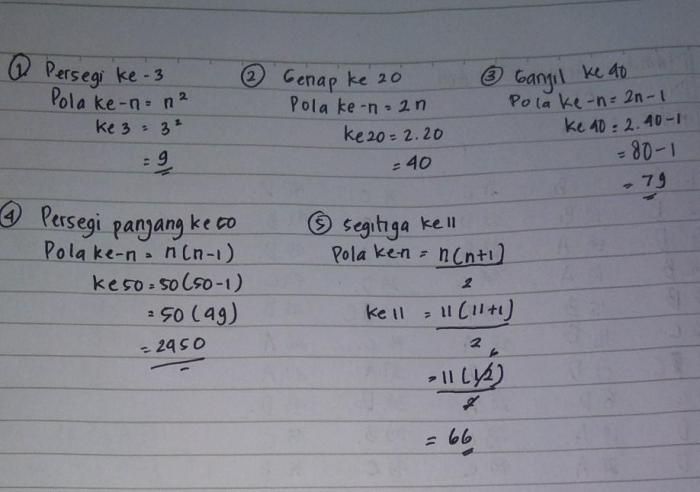 ① Persegi ke-3
Pola ke-n = n²
ke 3 = 3²
= 9
② Genap ke 20
Pola ke-n = 2n
ke 20 = 2.20
= 40
③ Ganjil ke 40
Pola ke-n = 2n-1
ke 40 = 2.40-1
= 80-1
= 79
④ Persegi panjang ke 50
Pola ke-n = n(n-1)
ke 50 = 50(50-1)
= 50(49)
= 2450
⑤ Segitiga ke 11
Pola ke n = n(n+1)
2
ke 11 = 11(11+1)
2
6
= 11(12)
2
= 66